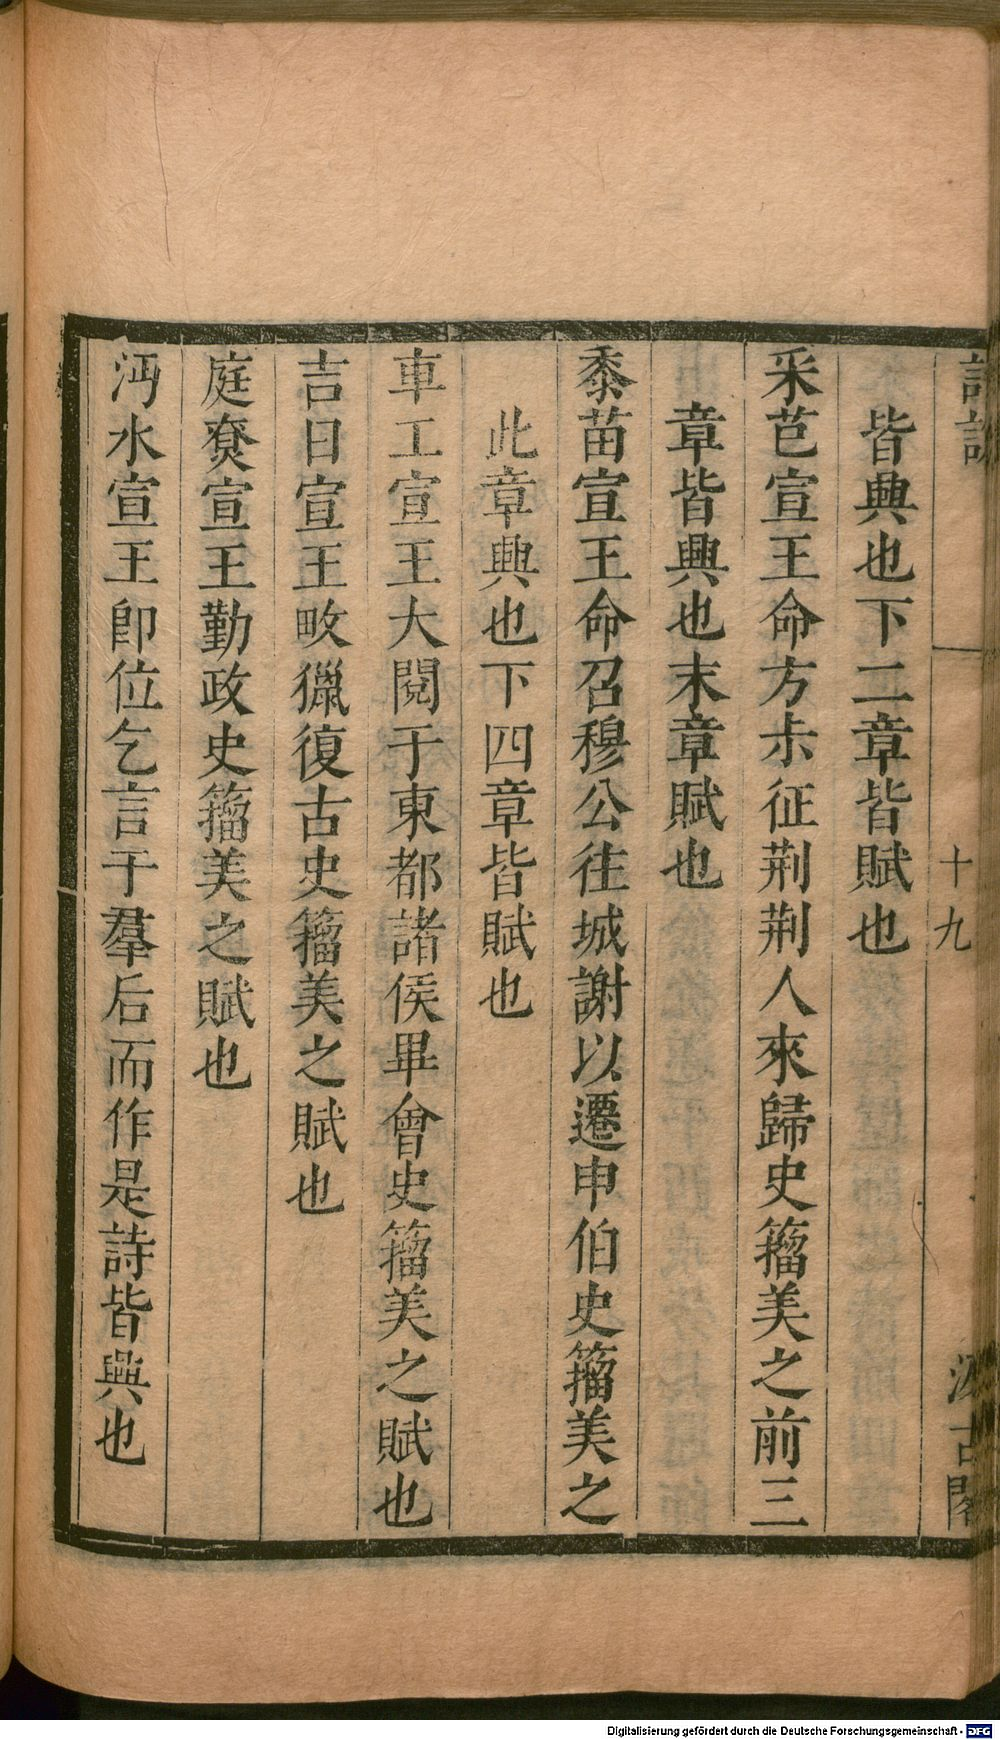 詩說
十九
汲古閣
皆興也下二章皆賦也
采芑宣王命方尗征荆荆人來歸史籀美之前三
章皆興也末章賦也
黍苗宣王命召穆公徃城謝以遷申伯史籀美之
此章興也下四章皆賦也
車工宣王大閱于東都諸侯畢會史籀美之賦也
吉日宣王畋獵復古史籀美之賦也
庭寮宣王勤政史籀美之賦也
沔水宣王卽位乞言于羣后而作是詩皆興也
Digitalisierung gefördert durch die Deutsche Forschungsgemeinschaft - DFG